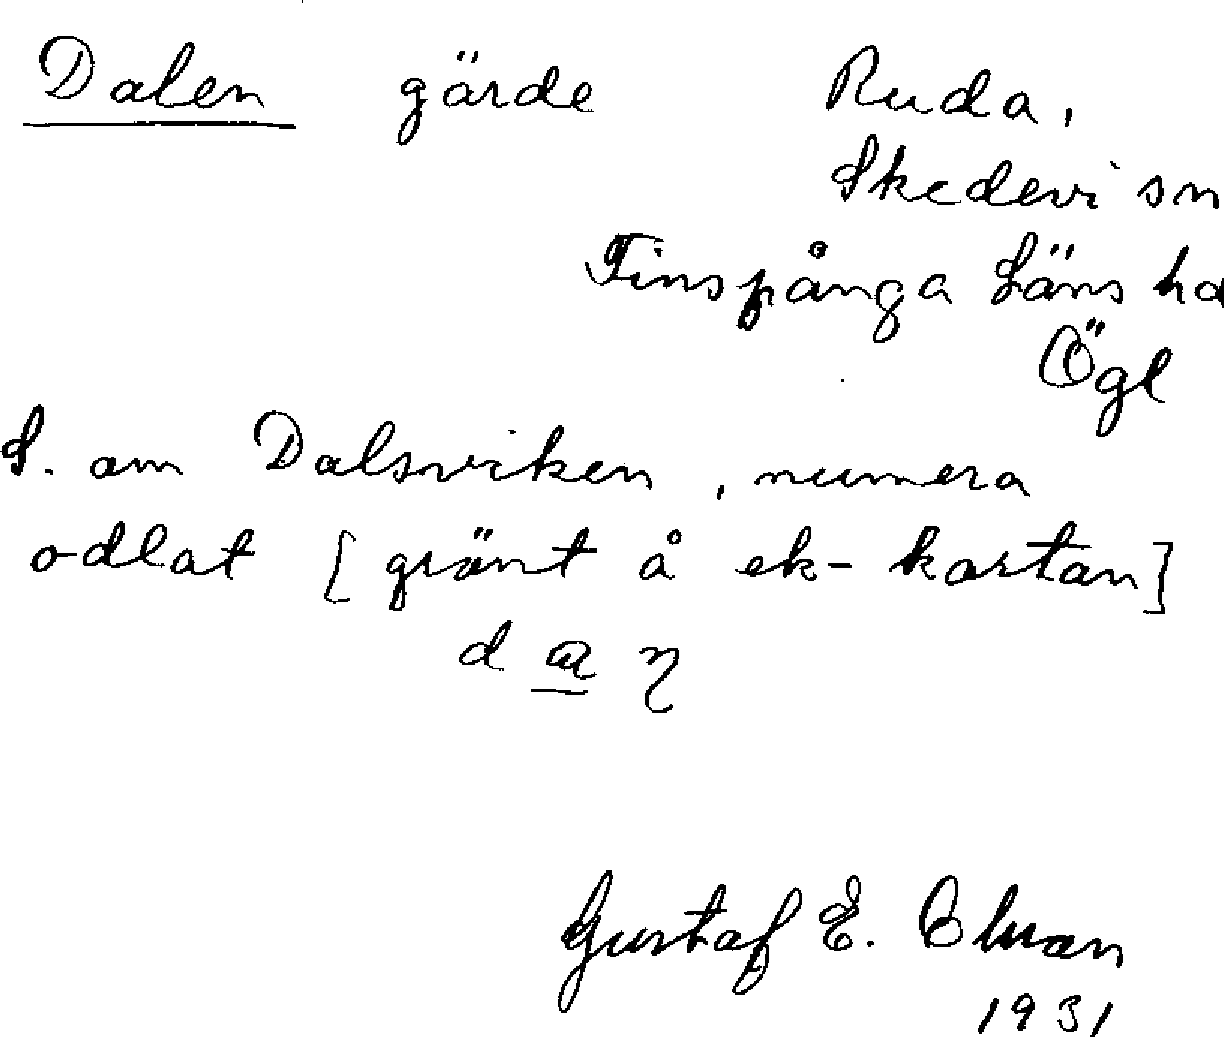 Dalen gärde Ruda,
Skedevi sn
Finspånga Läns hd
Ögl
S. om Dalsviken, numera
odlat [grönt å ek-kartan]
d a η
Gustaf E.
1931